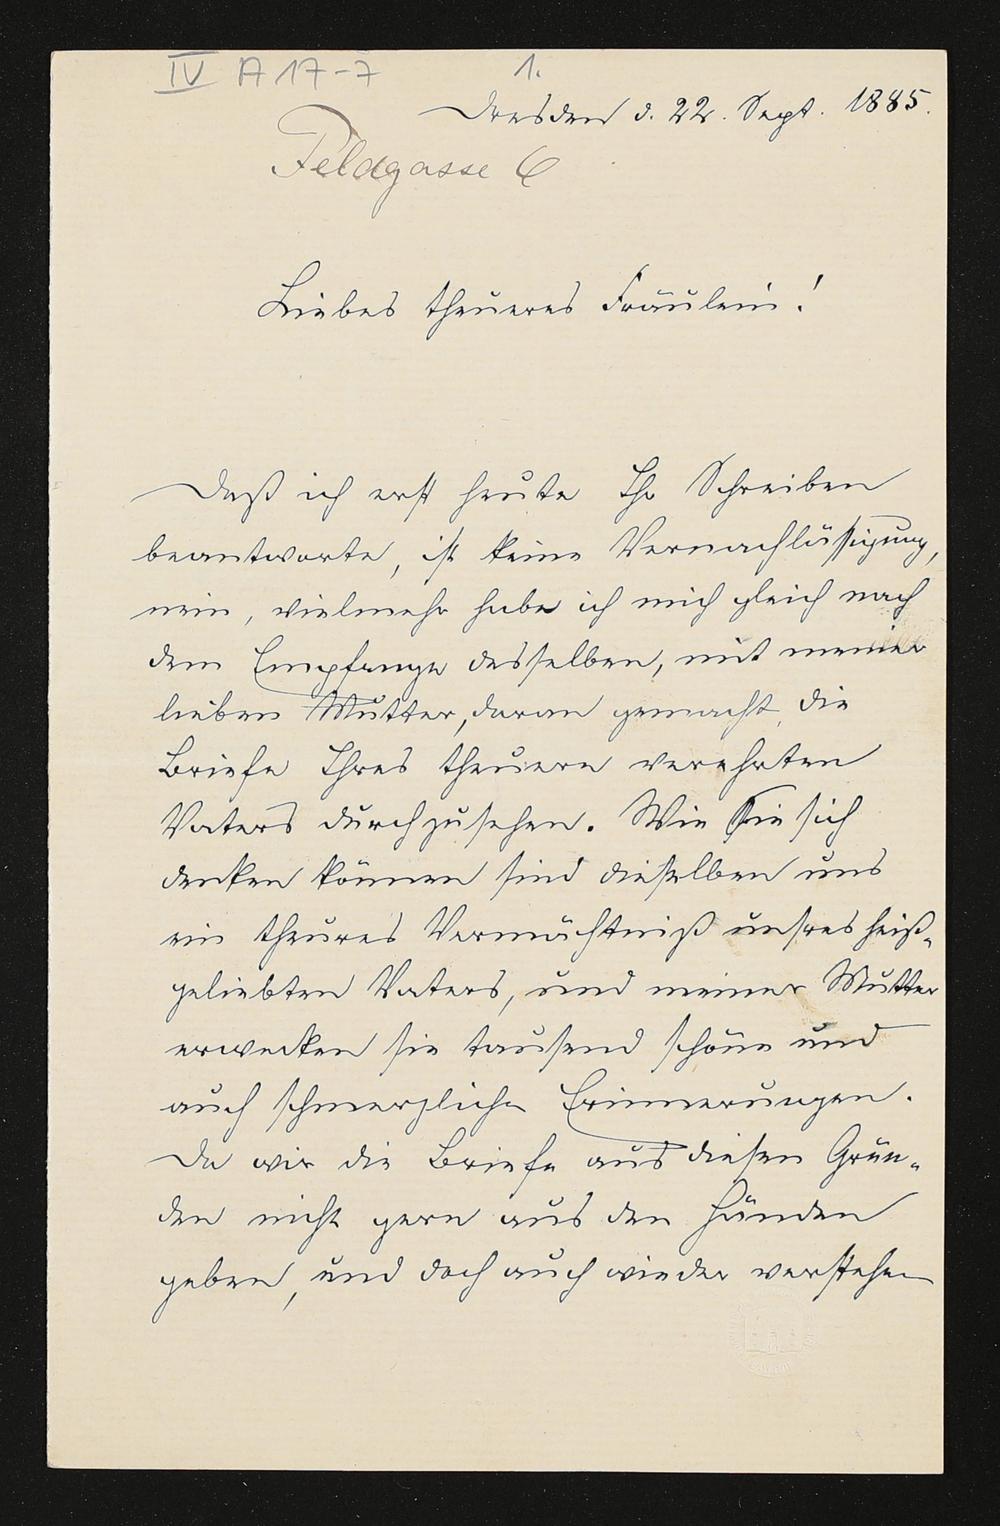 IV A 17-7 1.
Dresden d. 22. Sept. 1885.
Feldgasse 6
Liebes theueres Fräulein!
Daß ich erst heute Ihr Schreiben
beantworte, ist keine Vernachlässigung,
nein, vielmehr habe ich mich gleich nach
dem Empfange desselben, mit meiner
lieben Mutter, daran gemacht, die
Briefe Ihres theuern verehrten
Vaters durchzusehen. Wie Sie sich
denken können sind dieselben uns
ein theures Vermächtniß unsres heiß-
geliebten Vaters, und meiner Mutter
erwecken sie tausend schöne und
auch schmerzliche Erinnerungen.
Da wir die Briefe aus diesen Grün-
den nicht gern aus den Händen
geben, und doch auch wieder verstehen